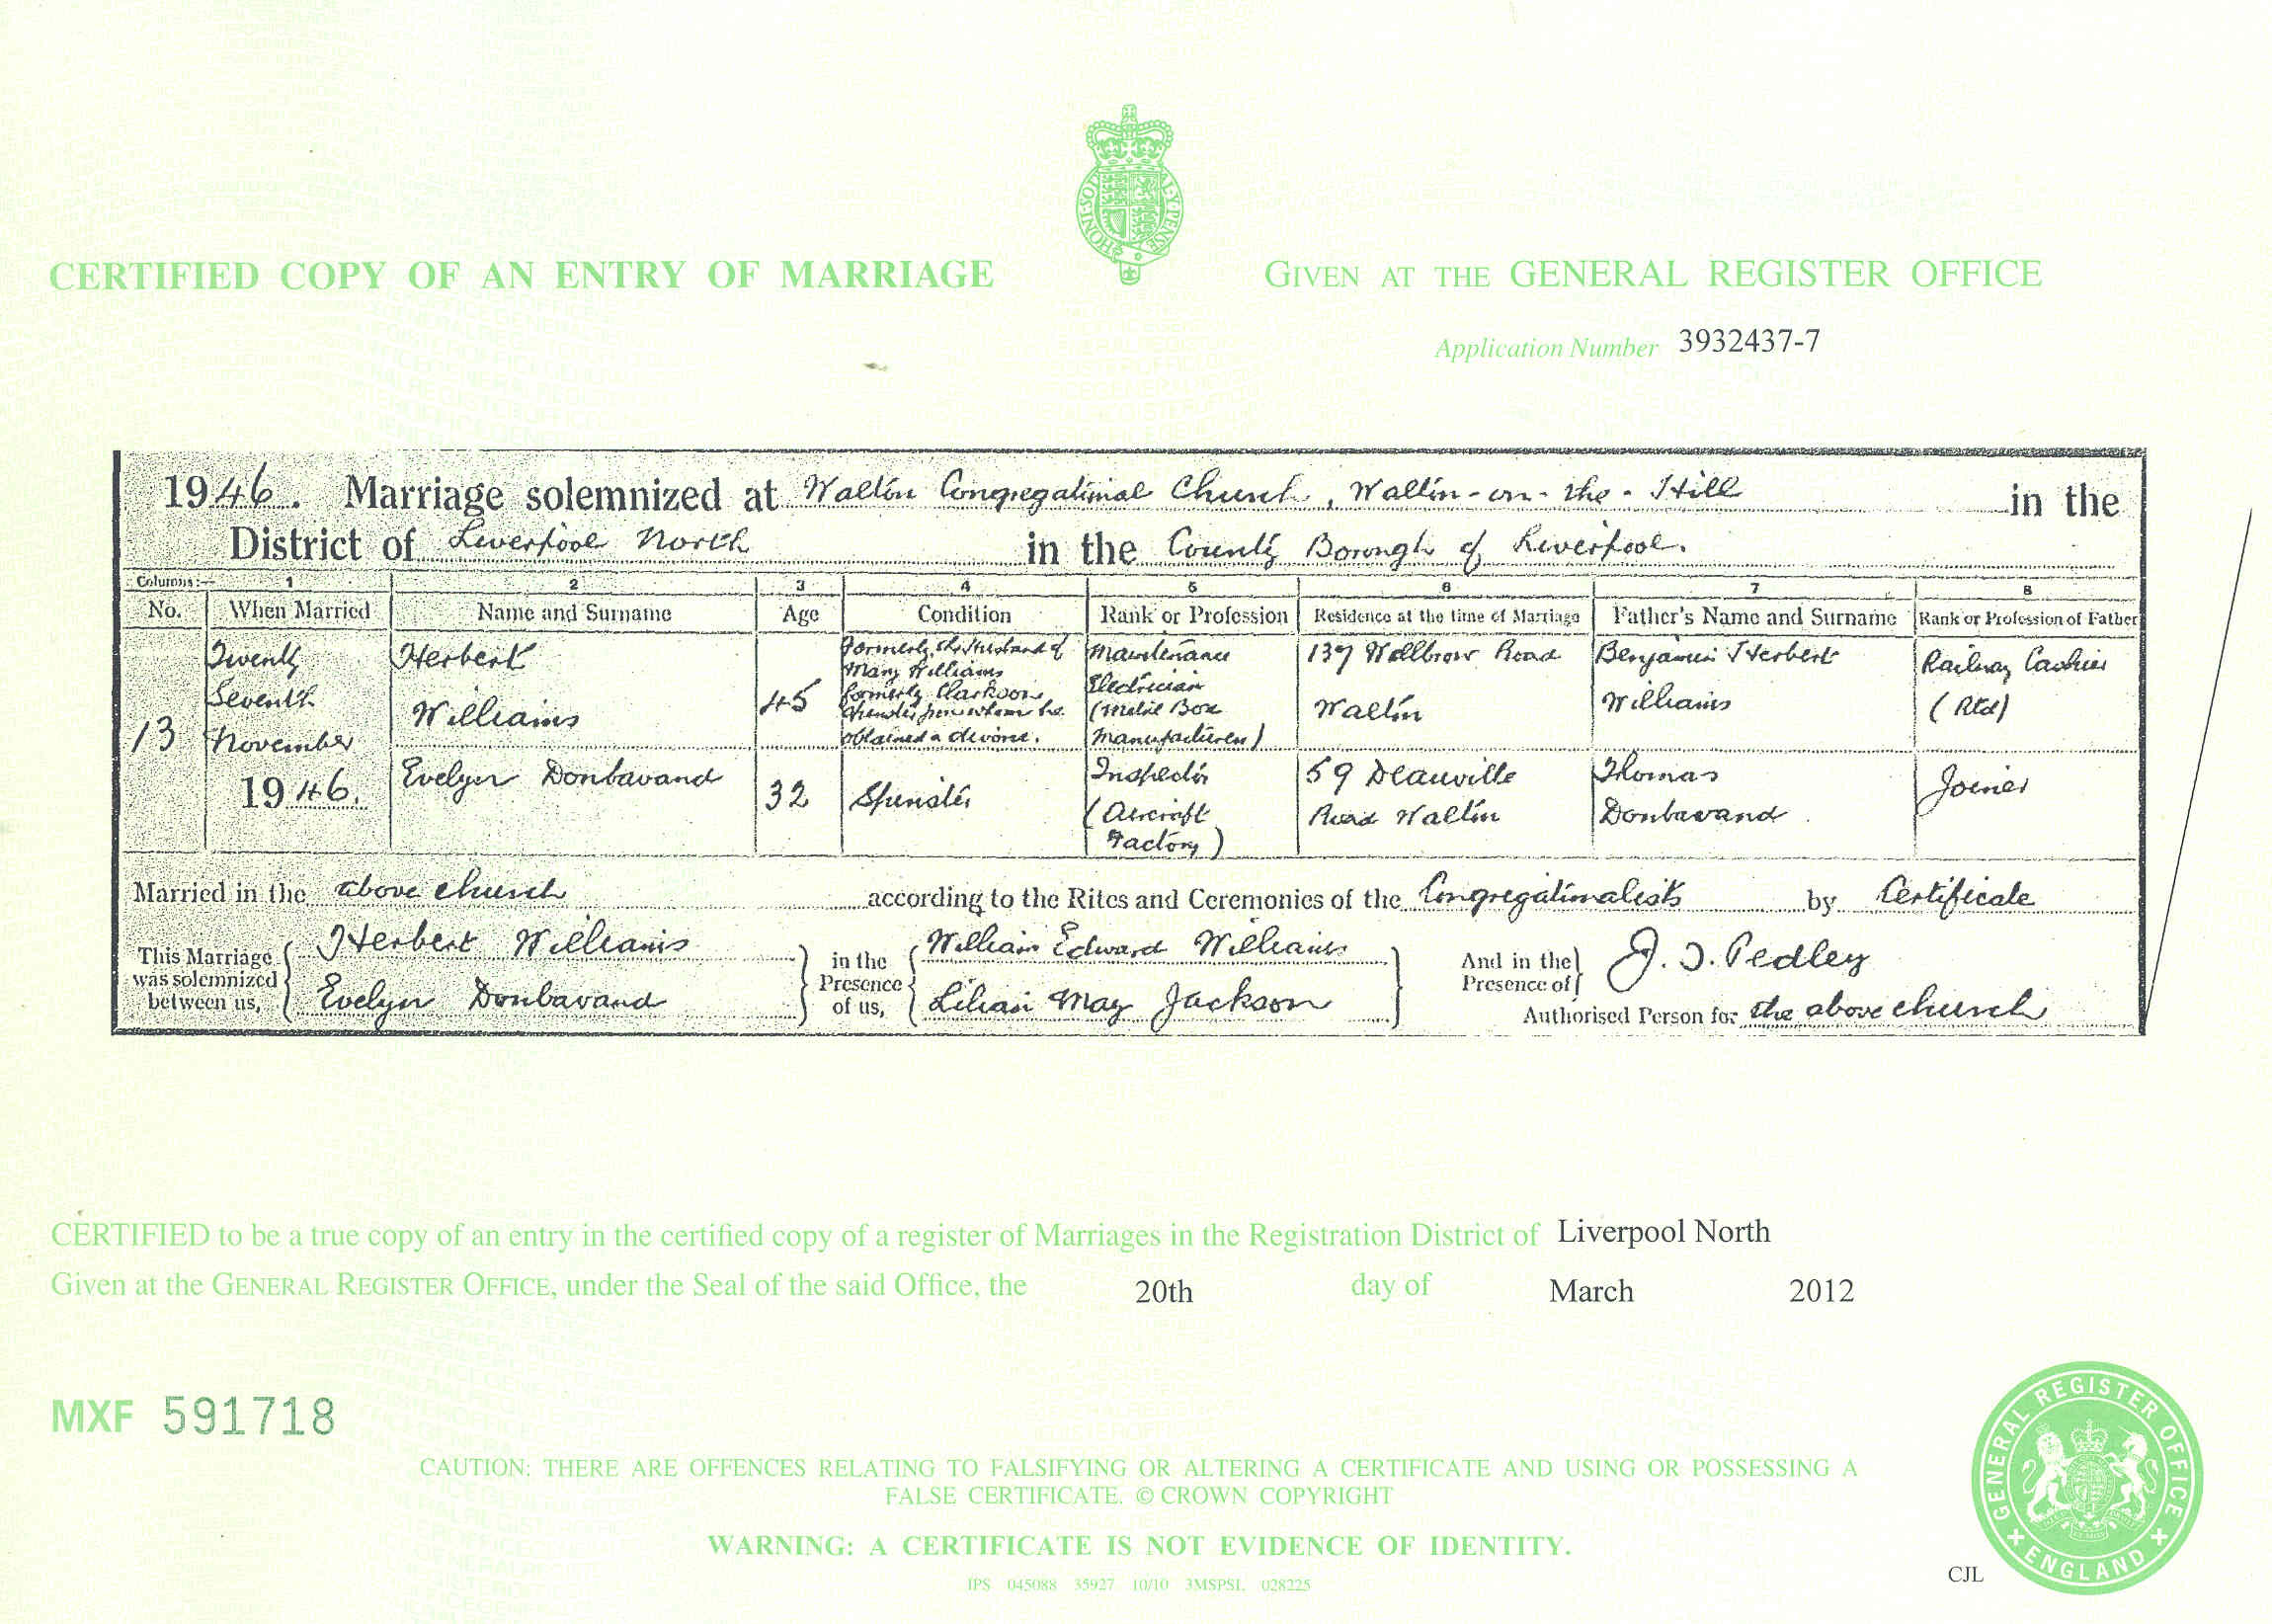 HONI·SOIT·QUI·MAL·Y·PENSE
CERTIFIED COPY OF AN ENTRY OF MARRIAGE
GIVEN AT THE GENERAL REGISTER OFFICE
Application Number 3932437-7
1946. Marriage solemnized at Walton Congregational Church, Walton-on-the-Hill in the
District of Liverpool North in the County Borough of Liverpool.
Columns:— 1 2 3 4 5 6 7 8
No. When Married Name and Surname Age Condition Rank or Profession Residence at the time of Marriage Father's Name and Surname Rank or Profession of Father
13
Twenty
Seventh
November
1946.
Herbert
Williams
45
Formerly the Husband of
Mary Williams
formerly Clarkson
Spinster from whom he
obtained a divorce.
Maintenance
Electrician
(Metal Box
Manufacturers)
137 Wellbrow Road
Walton
Benjamin Herbert
Williams
Railway Cashier
(Rtd)
Evelyn Donbavand
32
Spinster
Inspector
(Aircraft
Factory)
59 Deauville
Road Walton
Thomas
Donbavand
Joiner
Married in the above church according to the Rites and Ceremonies of the Congregationalists by Certificate
This Marriage
was solemnized
between us,
Herbert Williams
Evelyn Donbavand
in the
Presence
of us,
William Edward Williams
Lilian May Jackson
And in the
Presence of
J. Pedley
Authorised Person for the above church
CERTIFIED to be a true copy of an entry in the certified copy of a register of Marriages in the Registration District of Liverpool North
Given at the GENERAL REGISTER OFFICE, under the Seal of the said Office, the 20th day of March 2012
MXF 591718
CAUTION: THERE ARE OFFENCES RELATING TO FALSIFYING OR ALTERING A CERTIFICATE AND USING OR POSSESSING A
FALSE CERTIFICATE. © CROWN COPYRIGHT
WARNING: A CERTIFICATE IS NOT EVIDENCE OF IDENTITY.
IPS 045088 35927 10/10 3MSPSL 028225
CJL
GENERAL REGISTER OFFICE
ENGLAND